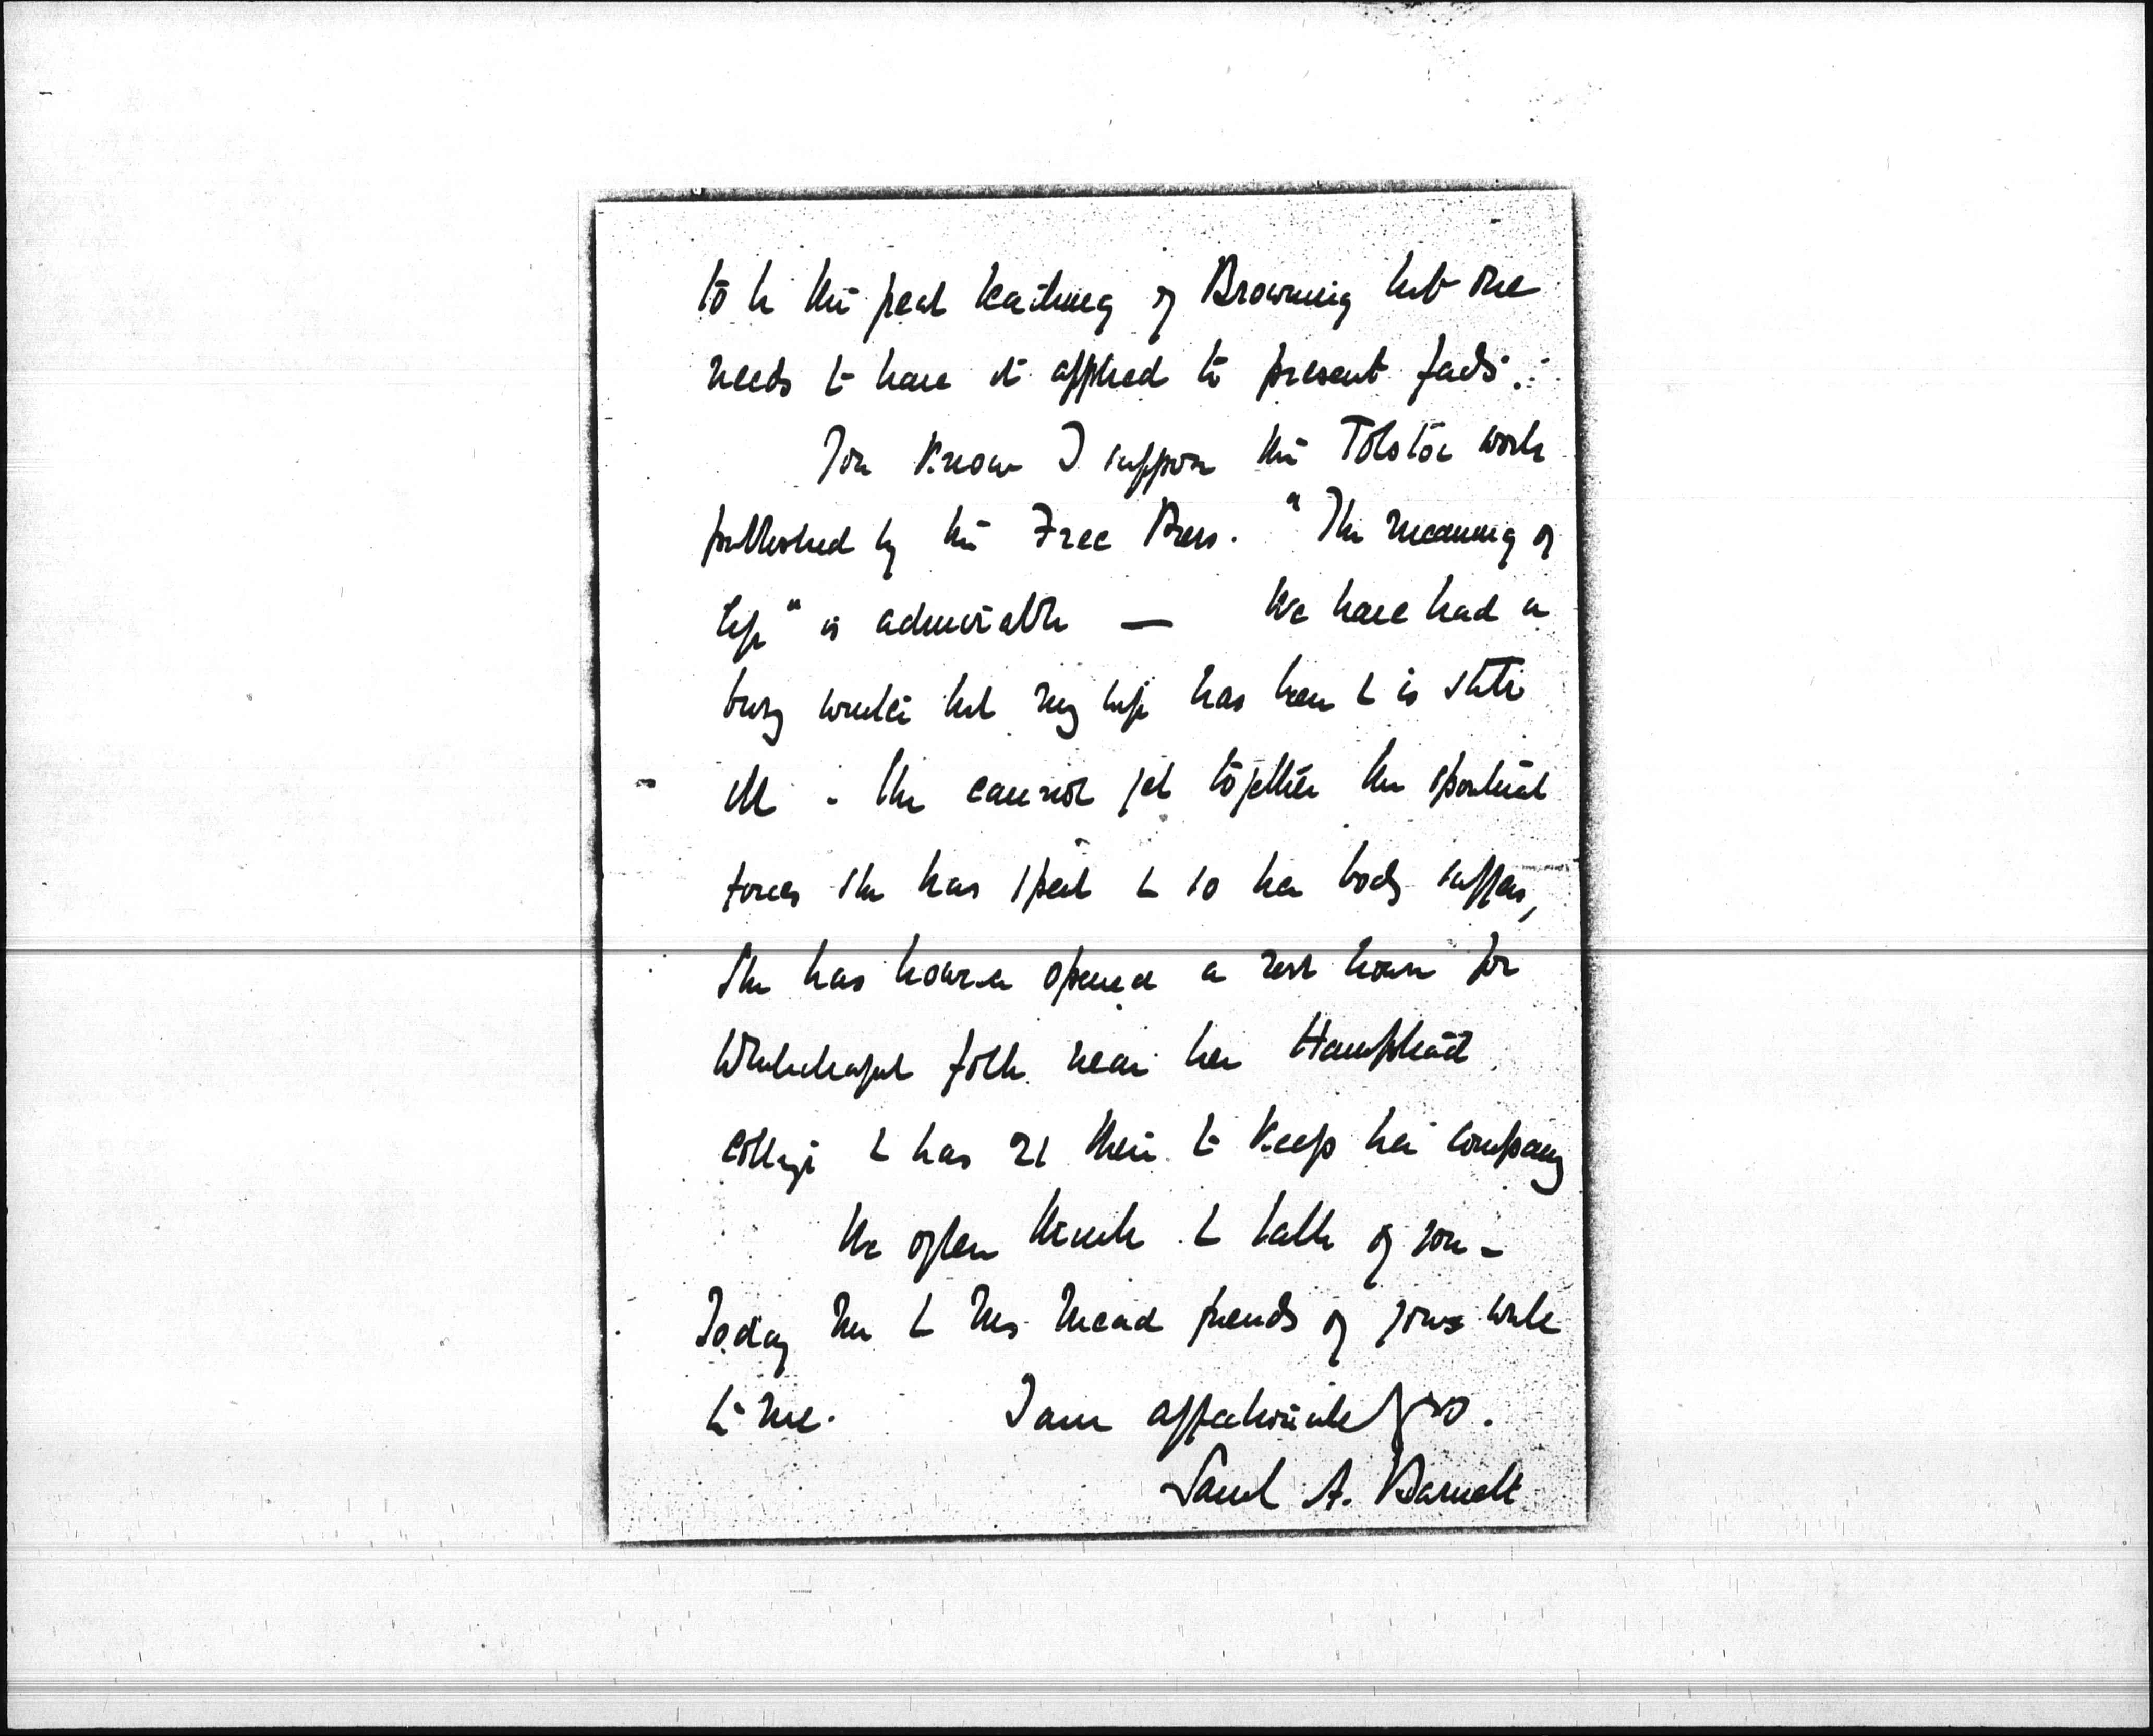 to be the great teaching of Browning but one
needs to have it applied to present facts.
You know I suppose the Tolstoi works
published by the Free Press. "The meaning of
life" is admirable — We have had a
busy winter but my wife has been & is still
ill. She cannot get together the spiritual
forces she has spent & so her body suffers,
She has however opened a rest house for
Whitechapel folk near her Hampstead
cottage & has 21 there to keep her company
We often think & talk of you -
Today Mr & Mrs Mead friends of yours write
to me. I am affectionately yrs.
Saml A. Barnett